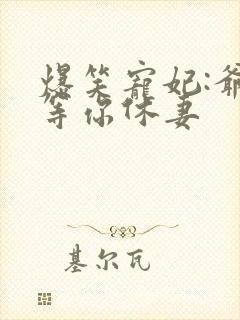 爆笑寵妃:爺
等你休妻
基尔瓦